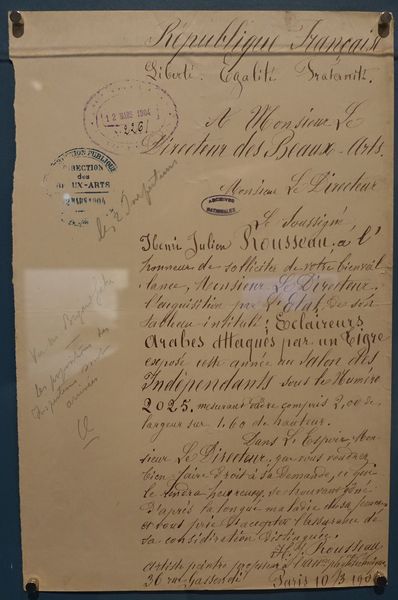 République Française
Liberté. Egalité Fraternité.
12 MARS 1904
226
A Monsieur Le
Directeur des Beaux-Arts.
INSTRUCTION PUBLIQUE
DIRECTION
des
BEAUX-ARTS
MARS 1904
Monsieur Le Directeur
ARCHIVES
NATIONALES
les 2 Inspecteurs
Le Soussigné,
Henri Julien Rousseau, a l'
honneur de solliciter de votre bienveil
lance, Monsieur Le Directeur,
l'acquisition par l'Etat, de son
tableau intitulé; Eclaireurs
Arabes Attaqués par un Tigre
exposé cette année au Salon des
Indépendants sous le Numéro
2025. mesurant Cadre compris 2,00 de
largeur sur 1.60 de hauteur.
les propositions des
Inspecteurs sont
Dans L'Espoir, Mon-
sieur Le Directeur, que vous voudrez
bien faire droit à sa Demande, ce qui
le rendra heureux, se trouvant gêné
D'après la longue maladie de sa
et vous prie D'accepter L'assurance de
sa considération Distinguée.
H. J. Rousseau
Artiste peintre professeur à
36 rue Gassendi
Paris 10/3